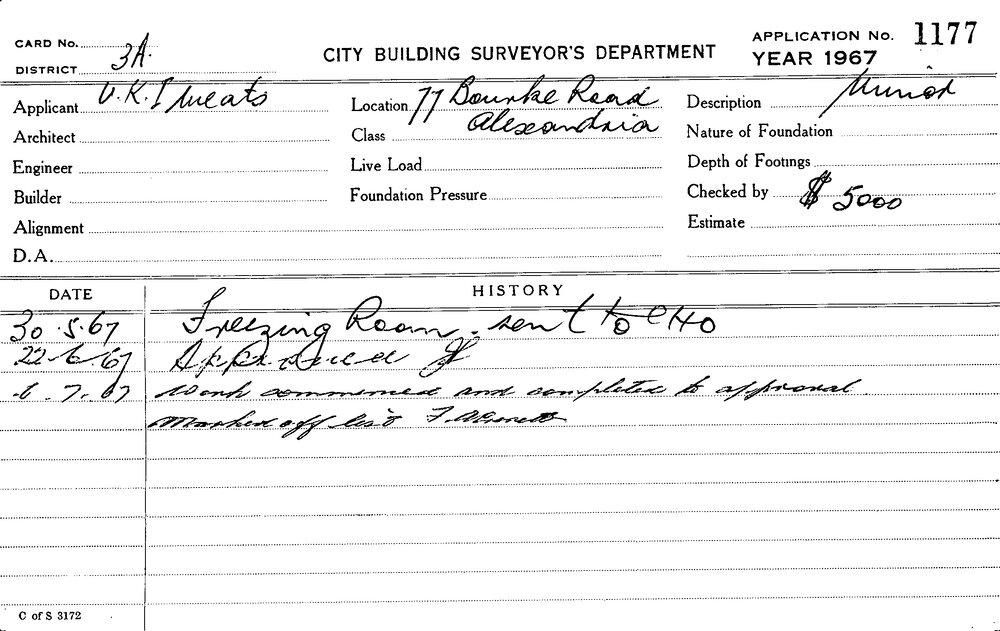 CARD No.
DISTRICT 3A.
CITY BUILDING SURVEYOR'S DEPARTMENT
APPLICATION No. 1177
YEAR 1967
Applicant V.K.I Meats
Location 77 Bourke Road
Alexandria
Description Minor
Architect
Class
Nature of Foundation
Engineer
Live Load
Depth of Footings
Builder
Foundation Pressure
Checked by $ 5000
Alignment
Estimate
D.A.
DATE
HISTORY
30.5.67 Freezing Room. sent to CHO
22.6.67 Approved
6.7.67 Work commenced and completed to approval.
Marked off list
C of S 3172